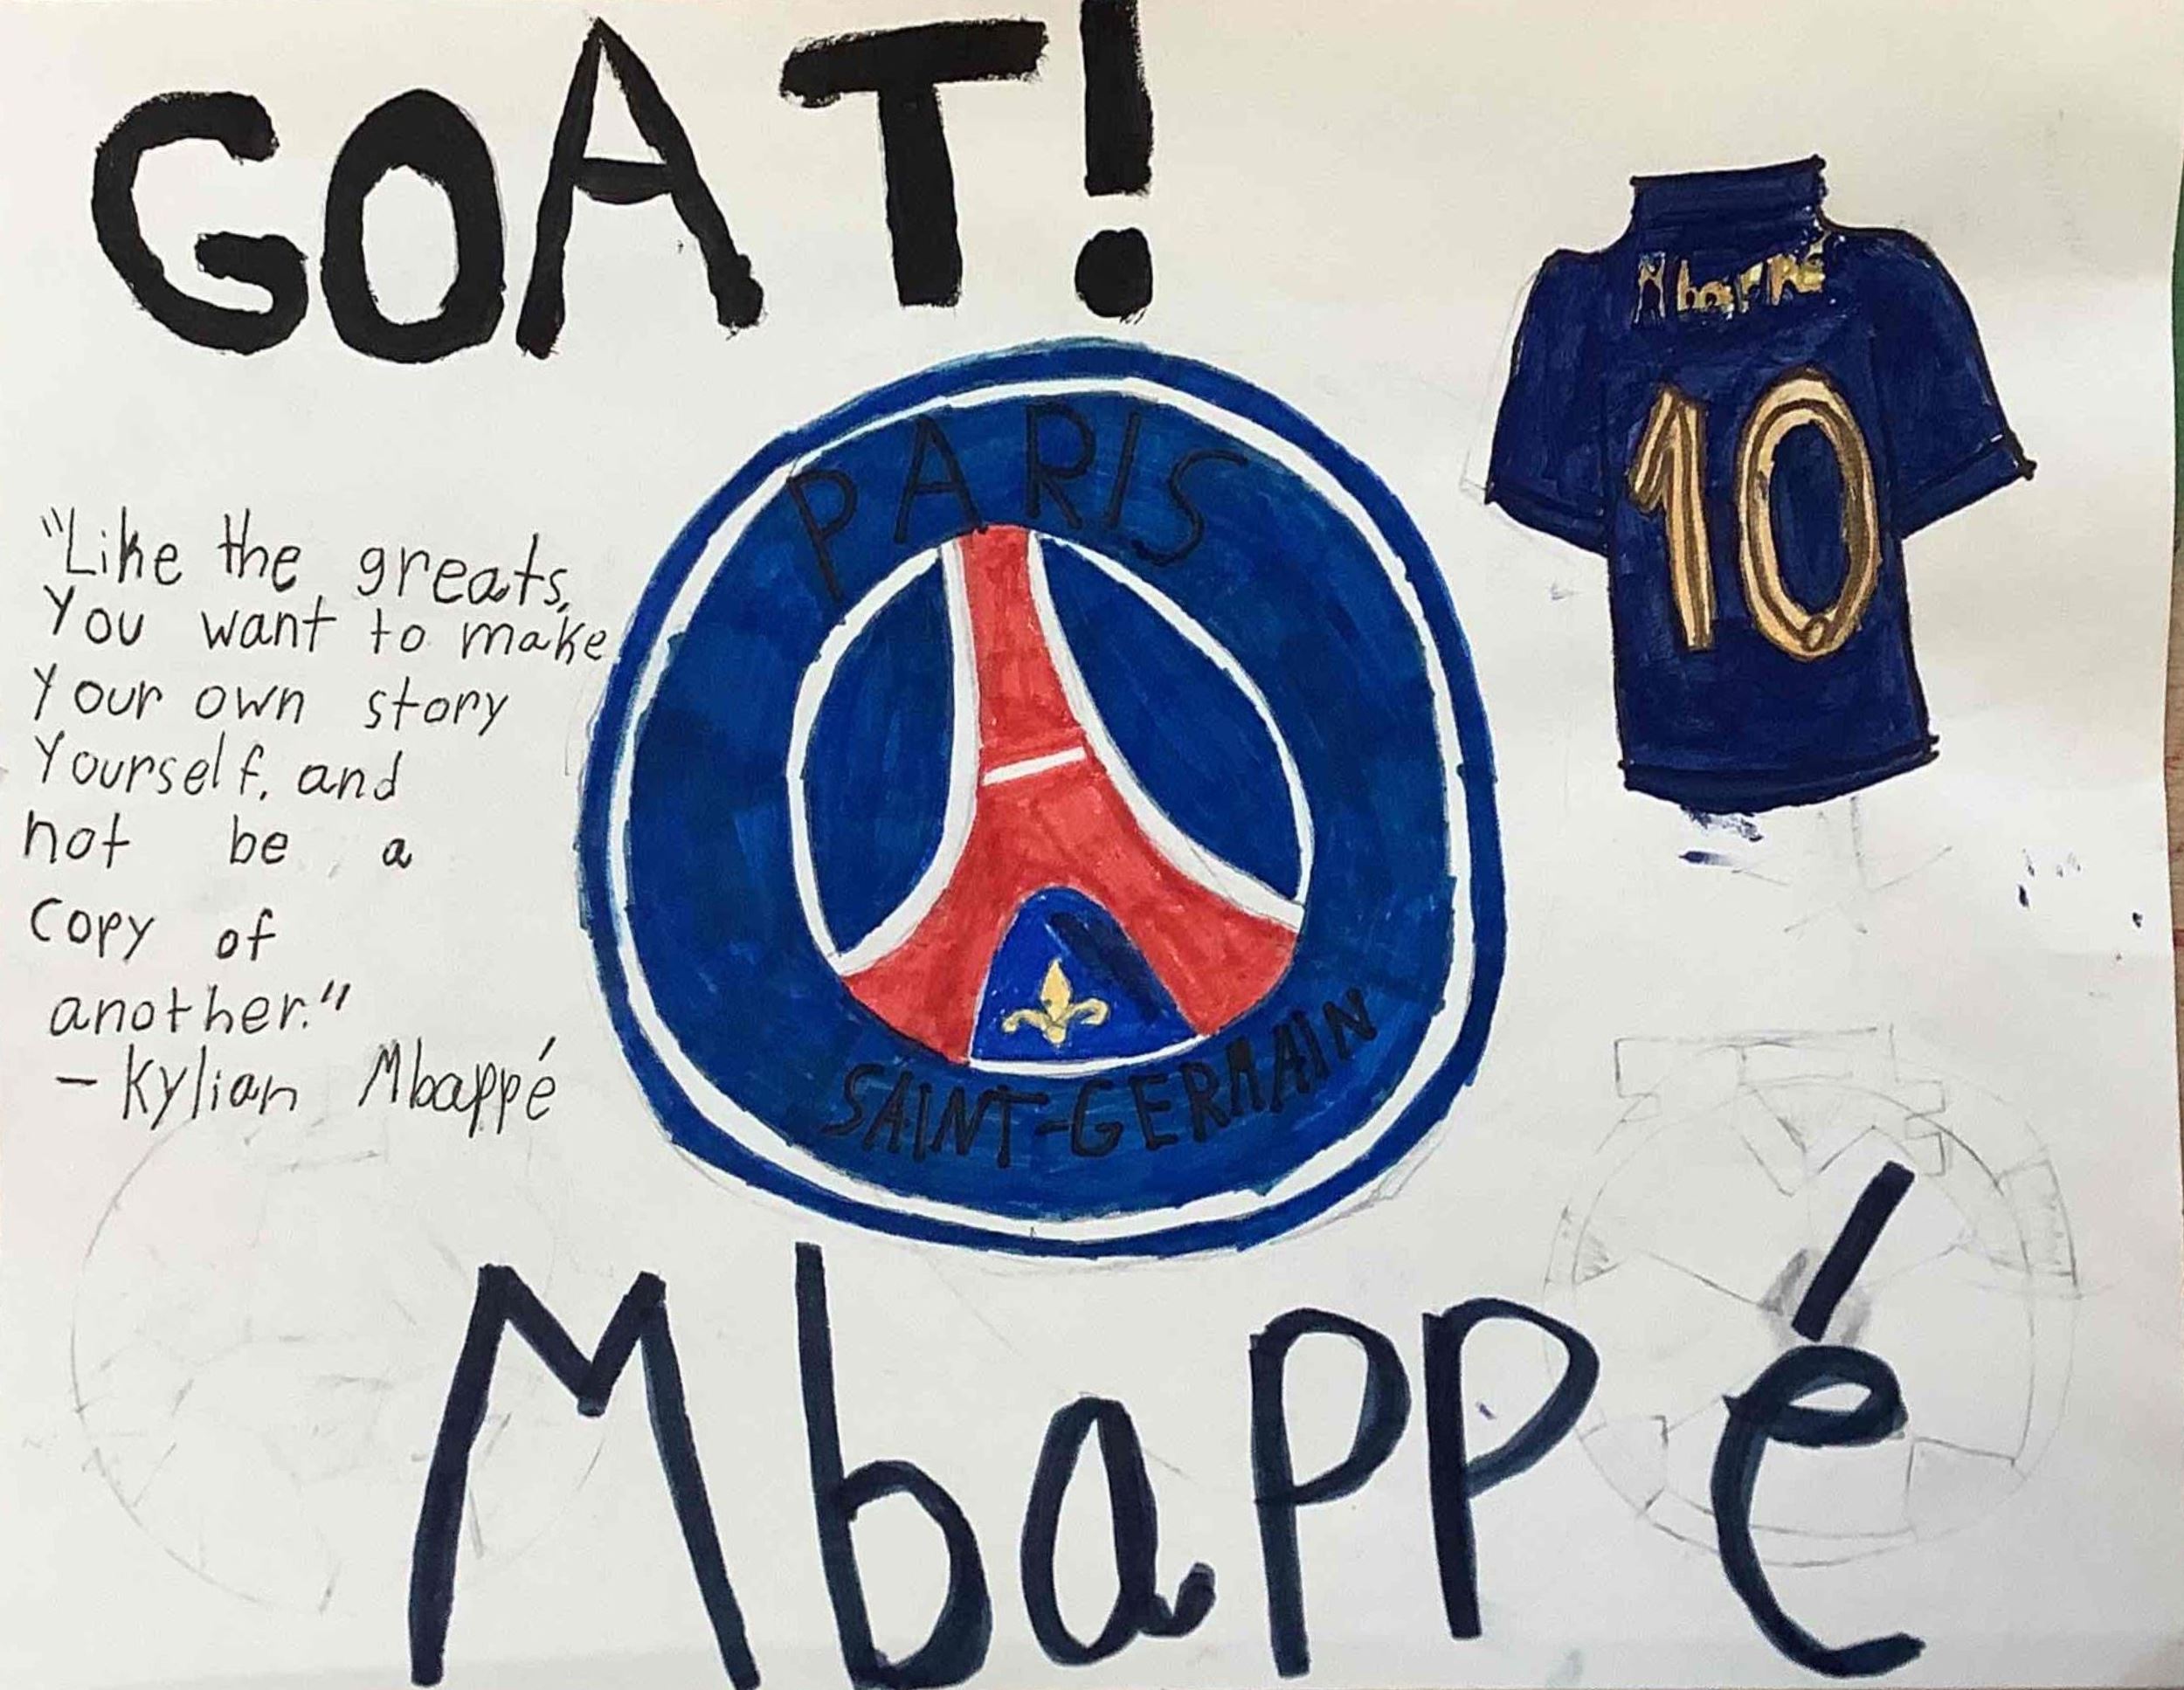 GOAT!
Mbappé
10
PARIS
SAINT-GERMAIN
"Like the greats,
You want to make
Your own story
Yourself, and
not be a
copy of
another."
- Kylian Mbappé
Mbappé